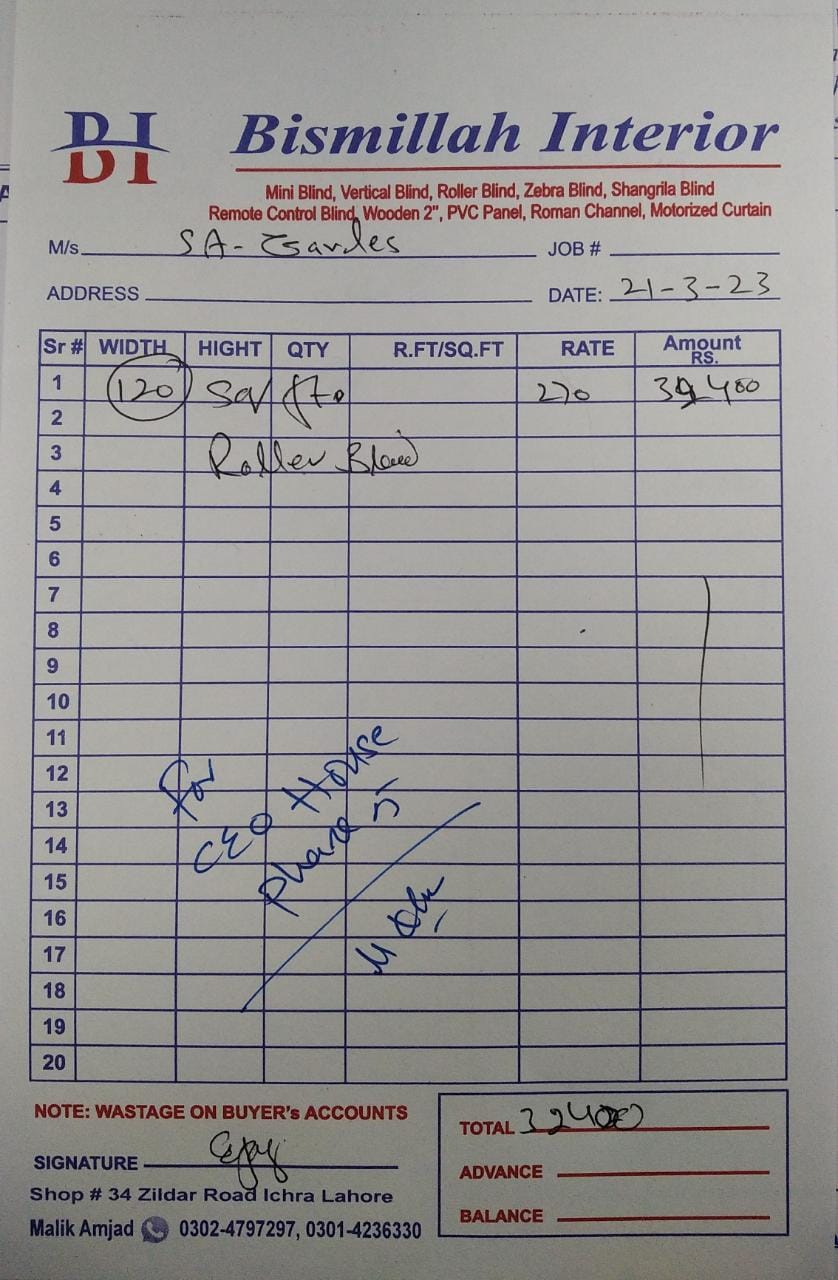 BI Bismillah Interior
Mini Blind, Vertical Blind, Roller Blind, Zebra Blind, Shangrila Blind
Remote Control Blind, Wooden 2", PVC Panel, Roman Channel, Motorized Curtain
M/s. SA- Gardes JOB #
ADDRESS DATE: 21-3-23
Sr # WIDTH HIGHT QTY R.FT/SQ.FT RATE Amount RS.
1 120 Sq ft. 270 32400
2
3 Roller Blind
4
5
6
7
8
9
10
11
12
13
14
15
16
17
18
19
20
For
CEO House
Phase 5
NOTE: WASTAGE ON BUYER's ACCOUNTS
TOTAL 32400
SIGNATURE
ADVANCE
Shop # 34 Zildar Road Ichra Lahore
BALANCE
Malik Amjad 0302-4797297, 0301-4236330